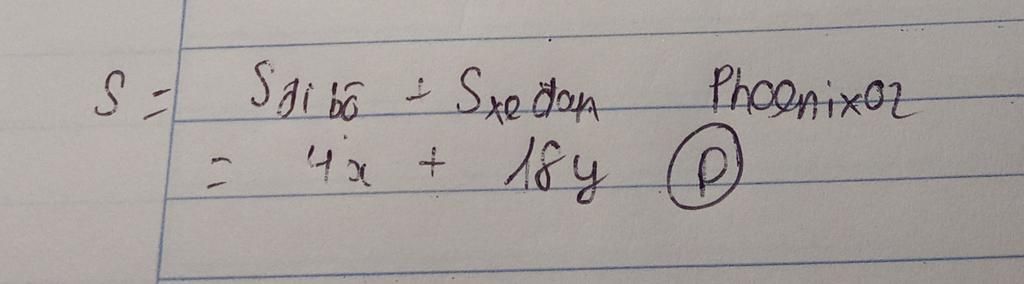 S = Sđi bộ + Sxe đạp Phoenixoz
= 4x + 18y P